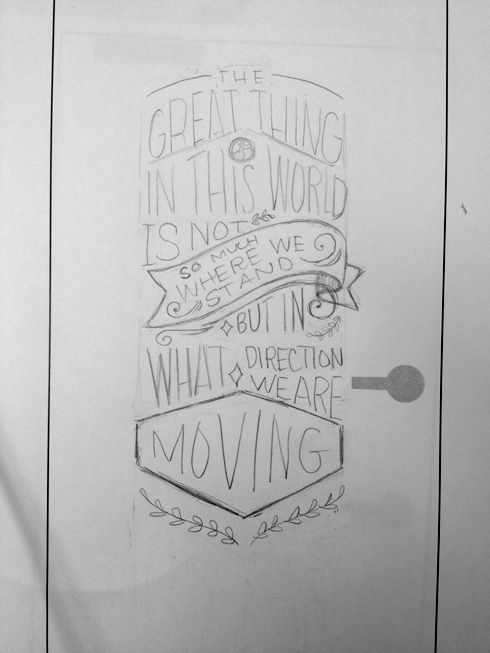 THE
GREAT THING
IN THIS WORLD
IS NOT
SO MUCH
WHERE WE
STAND
BUT IN
WHAT DIRECTION
WE ARE
MOVING